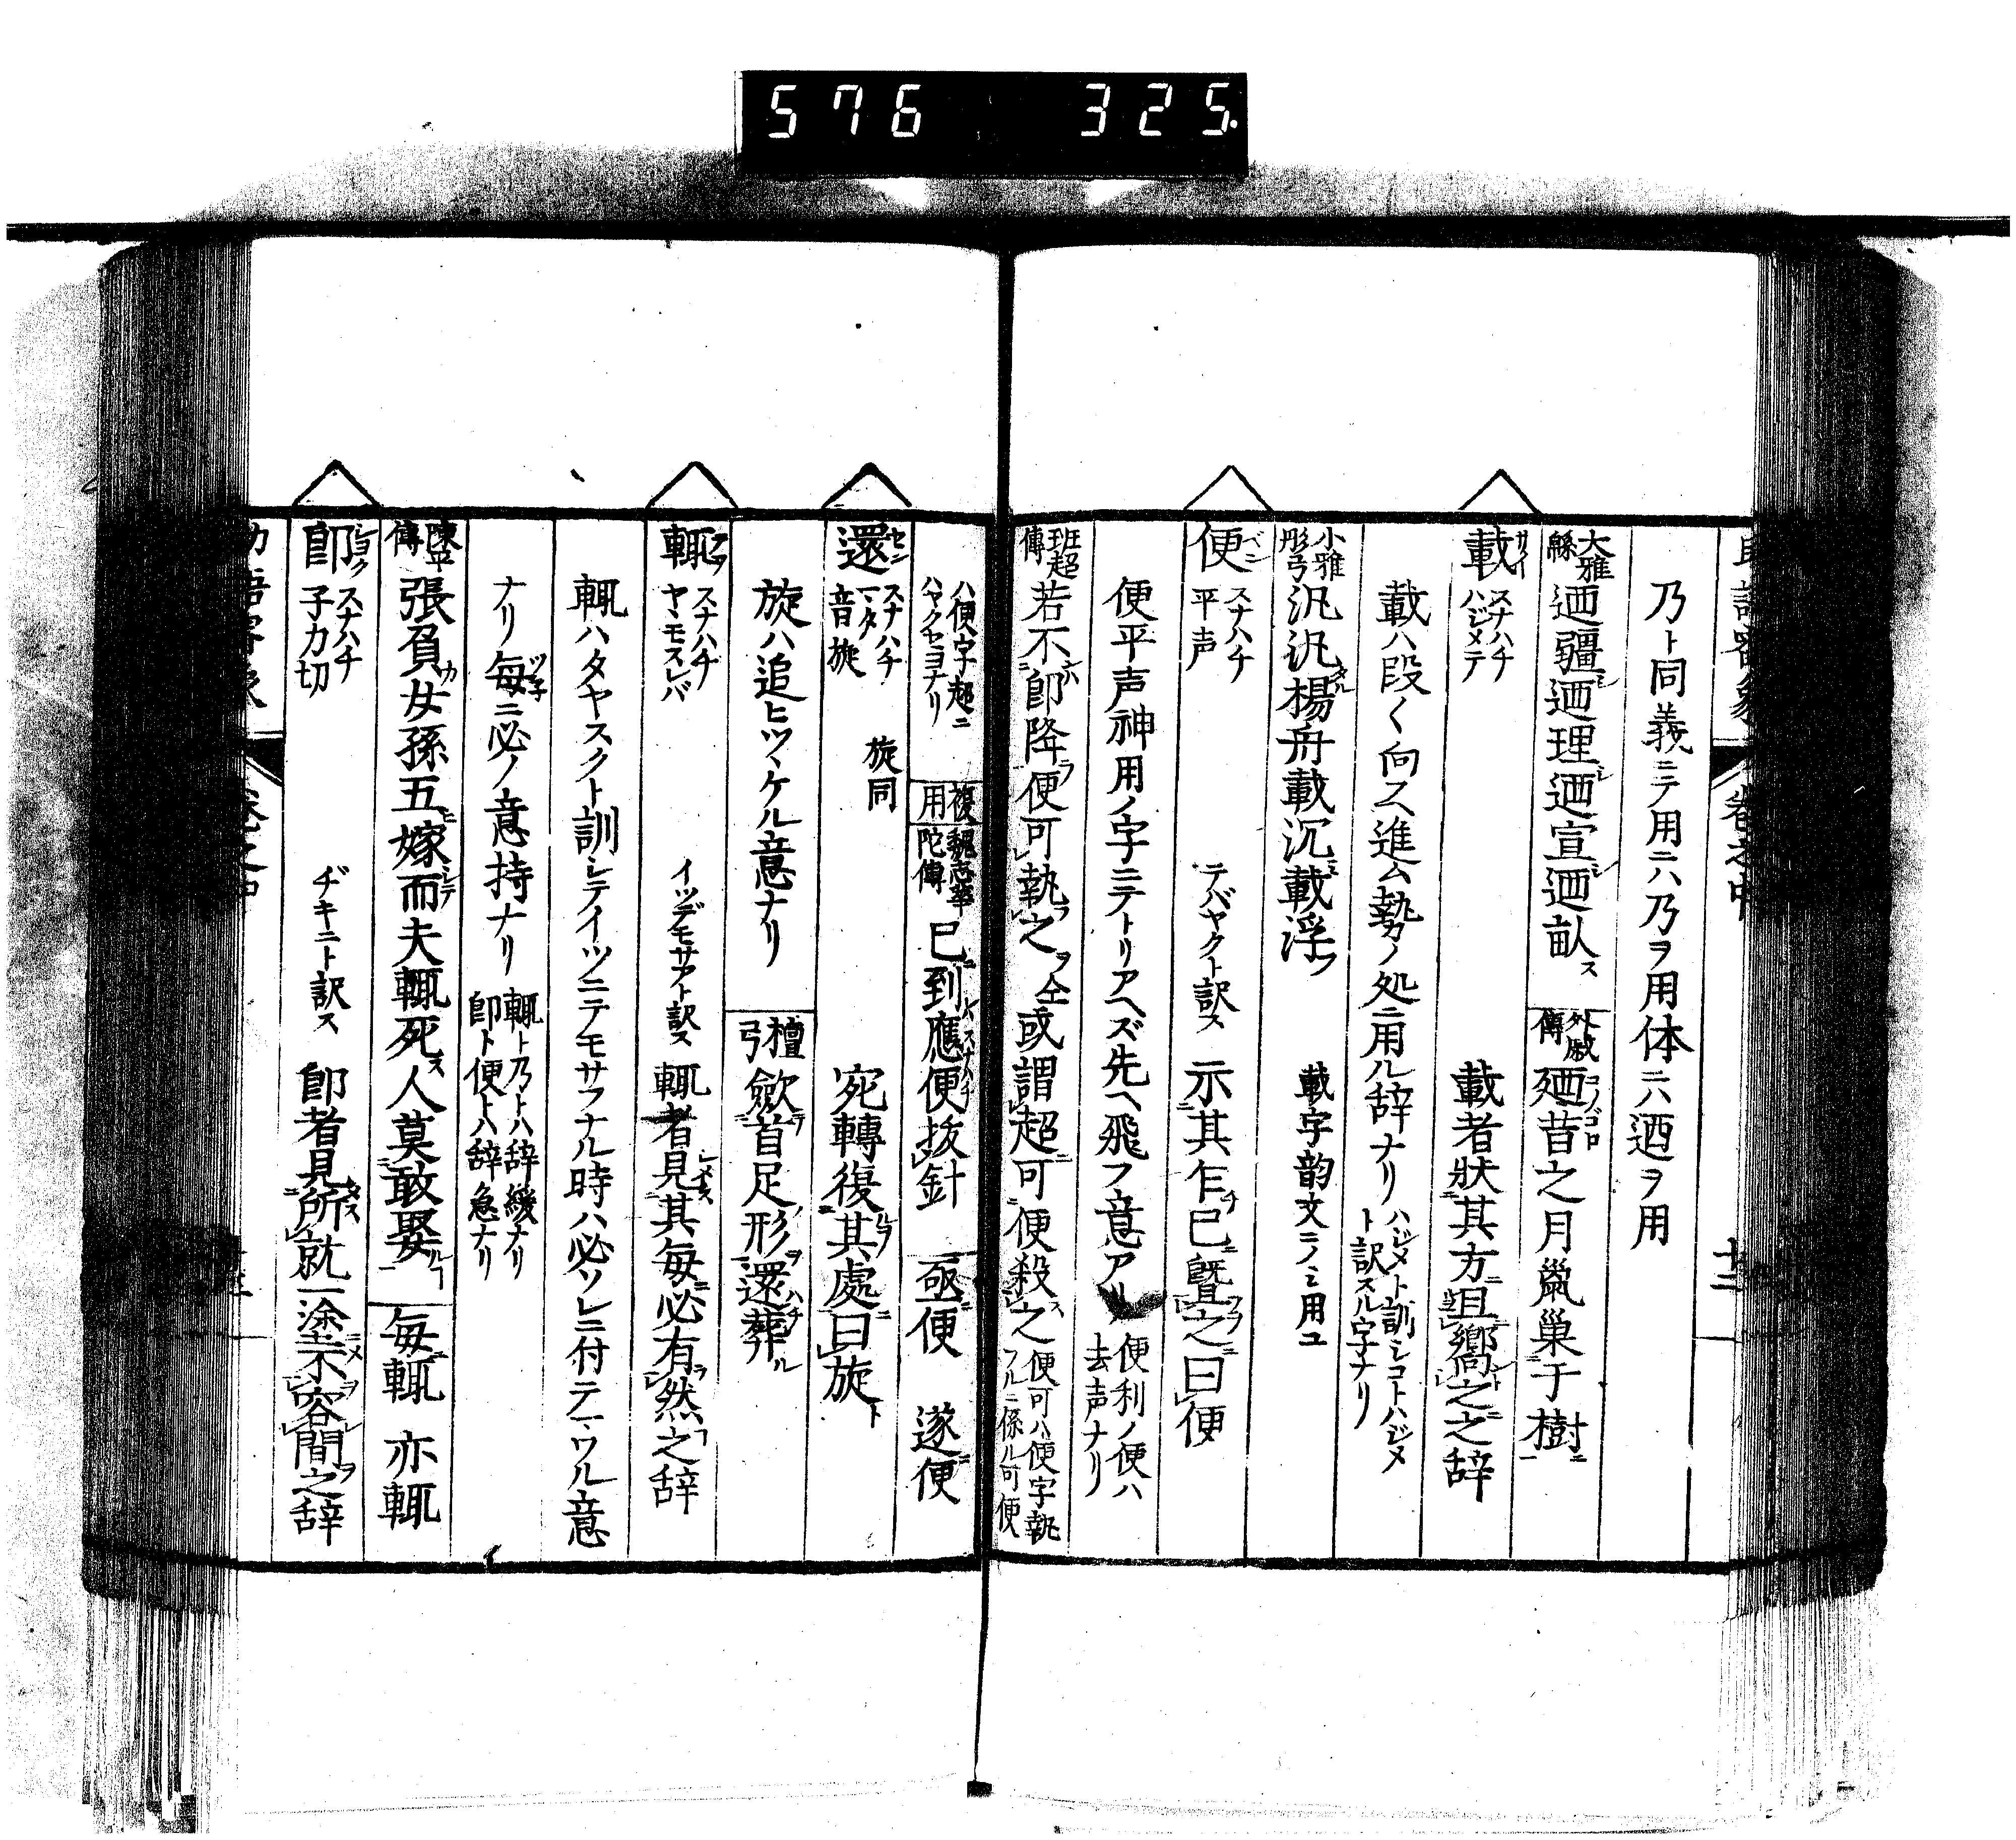 576 325.
乃ト同義ニテ用ニハ乃ヲ用体ニハ迺ヲ用
大雅緜 迺疆迺理迺宣迺畝ス 外戚傳 廼昔之月鼠巣于樹
載 サイ スナハチ ハジメテ 載者狀其方且嚮之之辞
載ハ段く向ヘ進ム勢ノ処ニ用ル辞ナリ ハジメト訓シコトハジメト訳スル字ナリ
小雅彤弓 汎汎楊舟載沉載浮フ 載字韵文ニノミ用ユ
便 ベン スナハチ 平声 テバヤクト訳ス 示其乍已曁之曰便
便平声神用ノ字ニテトリアヘズ先ヘ飛フ意アル 便利ノ便ハ去声ナリ
班超傳 若不即降便可執之ヲ仝或謂超可便殺之 便可ハ便字執フルニ係ル可便
ハ便字超ニハヤクセヨナリ 複用 魏志華陀傳 已到應便抜針 亟便 遂便
還 セン スナハチ マタ 音旋 旋同 宛轉復其處曰旋ト
旋ハ追ヒツヾケル意ナリ 檀弓 歛首足形還葬ル
輒 スナハチ ヤヽモスレバ イツデモサアト訳ス 輒者見其毎必有然之辞
輒ハタヤスクト訓シテイツニテモサフナル時ハ必ソレニ付テマワル意
ナリ毎ニ必ノ意持ナリ 輒ト乃トハ辞緩ナリ即ト便トハ辞急ナリ
陳平傳 張負女孫五嫁而夫輒死人莫敢娶 毎輒 亦輒
即 シヨク スナハチ 子力切 ヂキニト訳ス 即者見所就一塗不容間之辞